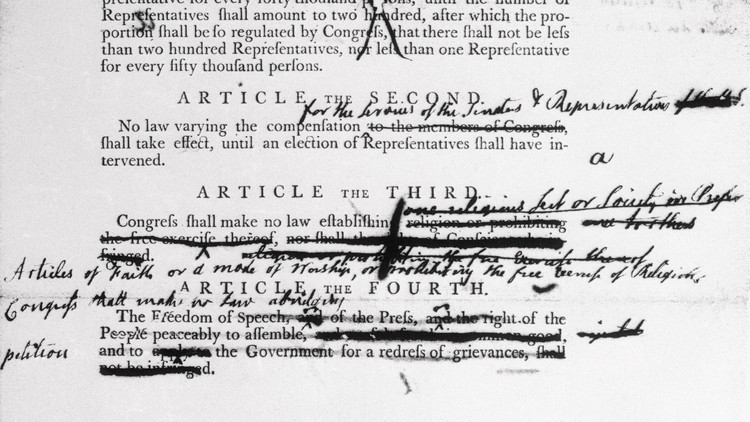 preſentative for every forty thouſand perſons, until the number of
Repreſentatives ſhall amount to two hundred, after which the pro-
portion ſhall be ſo regulated by Congreſs, that there ſhall not be leſs
than two hundred Repreſentatives, nor leſs than one Repreſentative
for every fifty thouſand perſons.
ARTICLE THE SECOND.
for the service of the Senators & Representatives
No law varying the compenſation to the members of Congreſs,
ſhall take effect, until an election of Repreſentatives ſhall have in-
tervened.
a
ARTICLE THE THIRD.
one religious Sect or Society in
Congreſs ſhall make no law eſtabliſhing religion or prohibiting
the free exerciſe thereof, nor ſhall the rights of Conſcience be in-
fringed.
Articles of Faith or a mode of Worship, or prohibiting the free exercise of Religion,
ARTICLE THE FOURTH.
Congress shall make no law abridging
The Freedom of Speech, and of the Preſs, and the right of the
People peaceably to aſſemble,
petition
and to apply to the Government for a redreſs of grievances, ſhall
not be infringed.